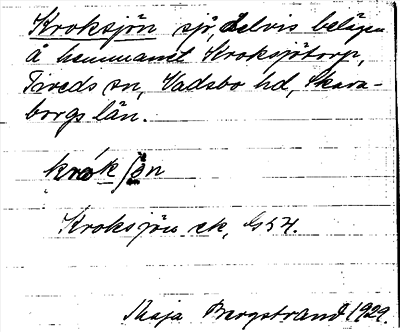 Kroksjön sjö, delvis belägen
å hemmanet Kroksjötorp,
Tiveds sn, Vadsbo hd, Skara-
borgs län.
Kroksjön ek, G54.
Maja Bergstrand 1929.